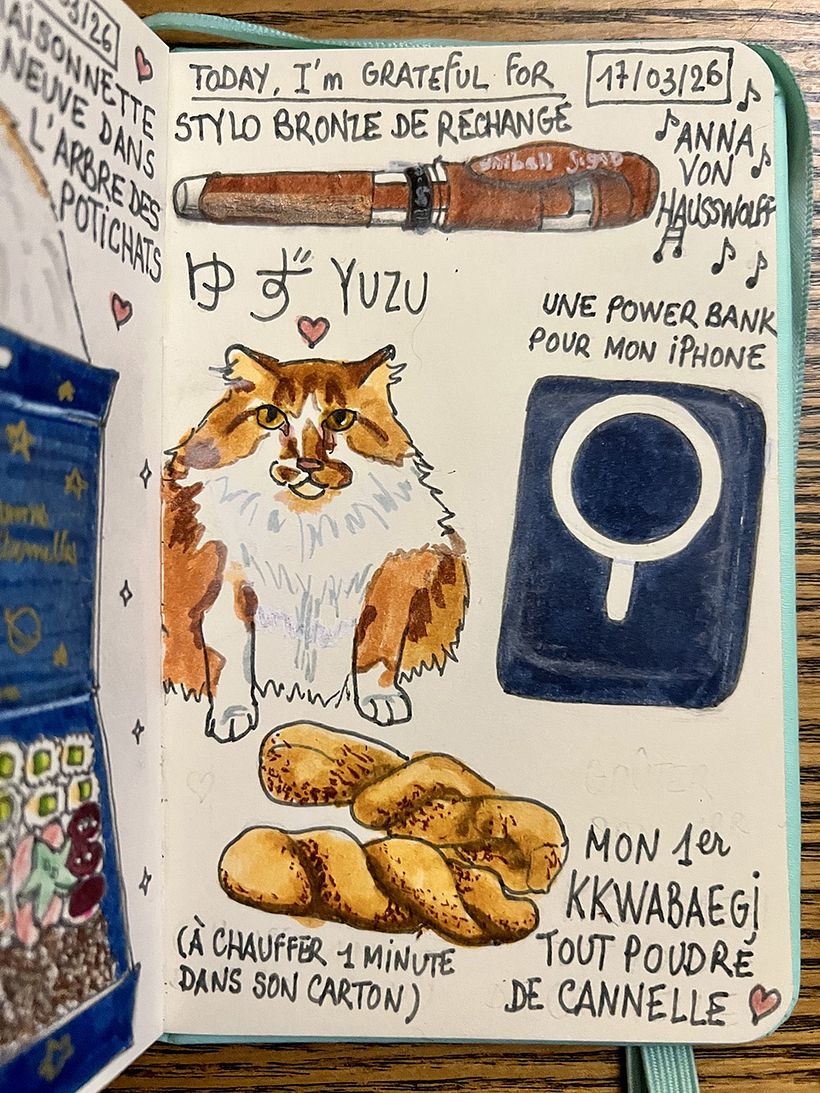 03/26
MAISONNETTE
NEUVE DANS
L'ARBRE DES
POTICHATS
TODAY, I'm GRATEFUL FOR
17/03/26
STYLO BRONZE DE RECHANGE
uniball Signo
ANNA
VON
HAUSSWOLFF
ゆず YUZU
UNE POWER BANK
POUR MON iPHONE
MON 1er
KKWABAEGI
TOUT POUDRÉ
DE CANNELLE
(À CHAUFFER 1 MINUTE
DANS SON CARTON)